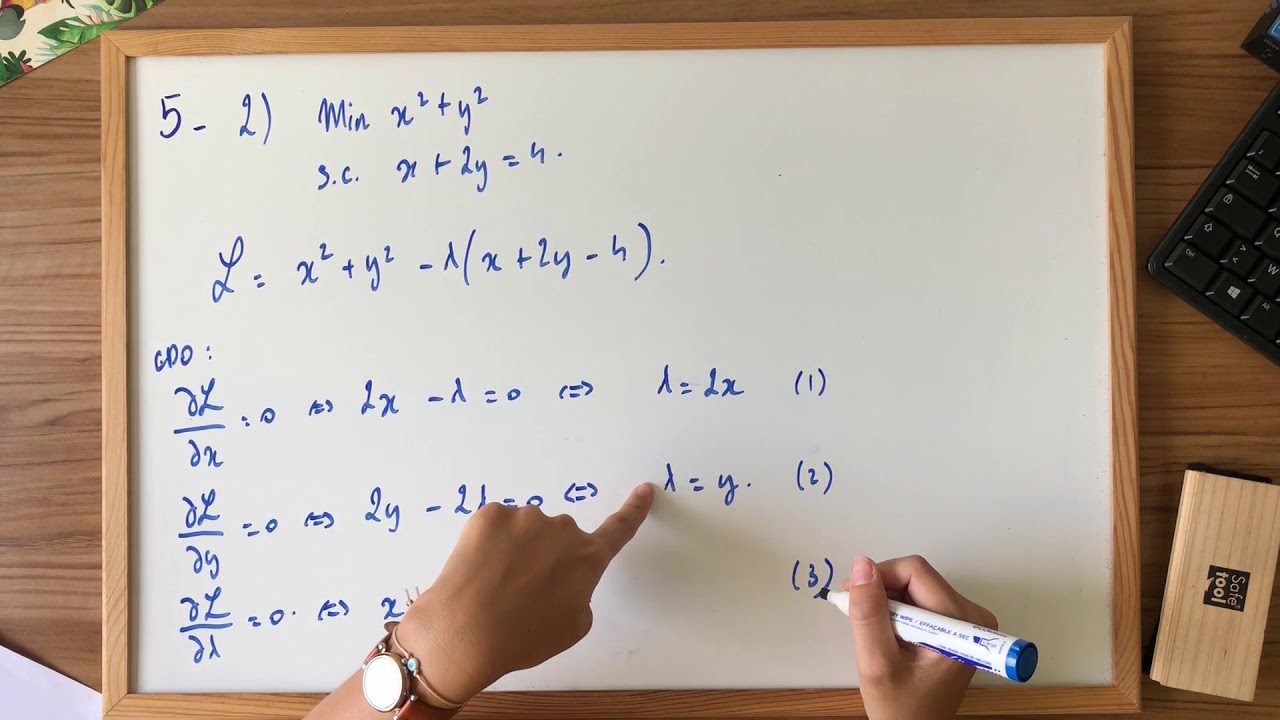 5- 2) Min x² + y²
s.c. x + 2y = 4.
ℒ = x² + y² - λ(x + 2y - 4).
CPO :
∂ℒ/∂x = 0 ⇔ 2x - λ = 0 ⇔ λ = 2x (1)
∂ℒ/∂y = 0 ⇔ 2y - 2λ = 0 ⇔ λ = y. (2)
∂ℒ/∂λ = 0. ⇔ x (3)
Safe
tool
Ctrl
Alt